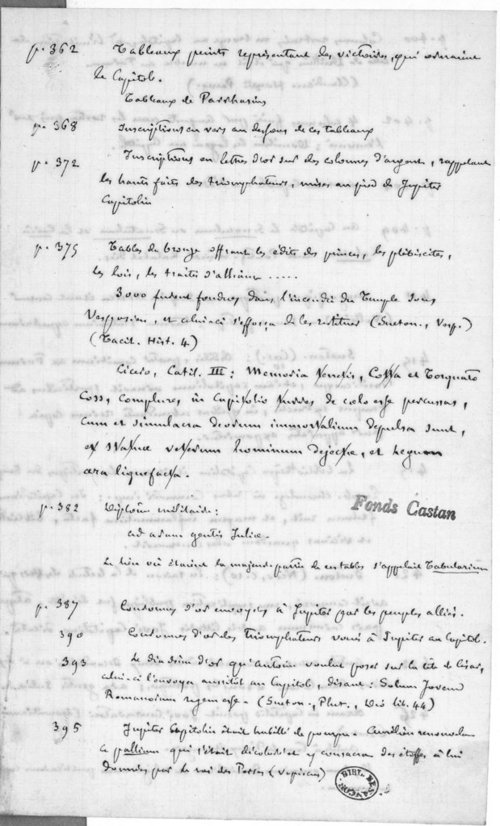 p. 362 Tableaux peints représentant les victoires, qui ornaient
le Capitole.
Tableaux de Parrhasius
p. 368 Inscriptions en vers au dessous de ces tableaux
p. 372 Inscriptions en lettres d'or sur des colonnes d'argent, rappelant
les hauts faits des triomphateurs, mises au pied de Jupiter
Capitolin
p. 375 Tables de bronze offrant les édits des princes, les plébiscites,
les lois, les traités d'alliance .....
3000 furent fondues dans l'incendie du Temple sous
Vespasien, et celui-ci s'efforça de les restituer (Sueton., Vesp.)
(Tacit. Hist. 4)
Cicero, Catil. III : Memoria tenetis, Cotta et Torquato
Coss, complures in Capitolio turres de cœlo esse percussas,
cum et simulacra deorum immortalium depulsa sunt,
et statuæ veterum hominum dejectæ, et legum
æra liquefacta.
p. 382 Diplôme militaire :
ad aram gentis Juliæ.
Le lieu où étaient la majeure partie de ces tables s'appelait Tabularium
Fonds Castan
p. 387 Couronnes d'or envoyées à Jupiter par les peuples alliés.
390 Couronnes d'or des Triomphateurs vouées à Jupiter au Capitole.
393 Le diadème d'or qu'Antoine voulut poser sur la tête de César,
celui-ci l'envoya aussitôt au Capitole, disant : Solum Jovem
Romanorum regem esse (Sueton., Plut., Dio lib. 44)
395 Jupiter Capitolin était habillé de pourpre. Aurélien renouvela
ce pallium qui s'était décoloré et y consacra des étoffes à lui
données par le roi des Perses (Vopiscus)
BIBL. DE BESANÇON